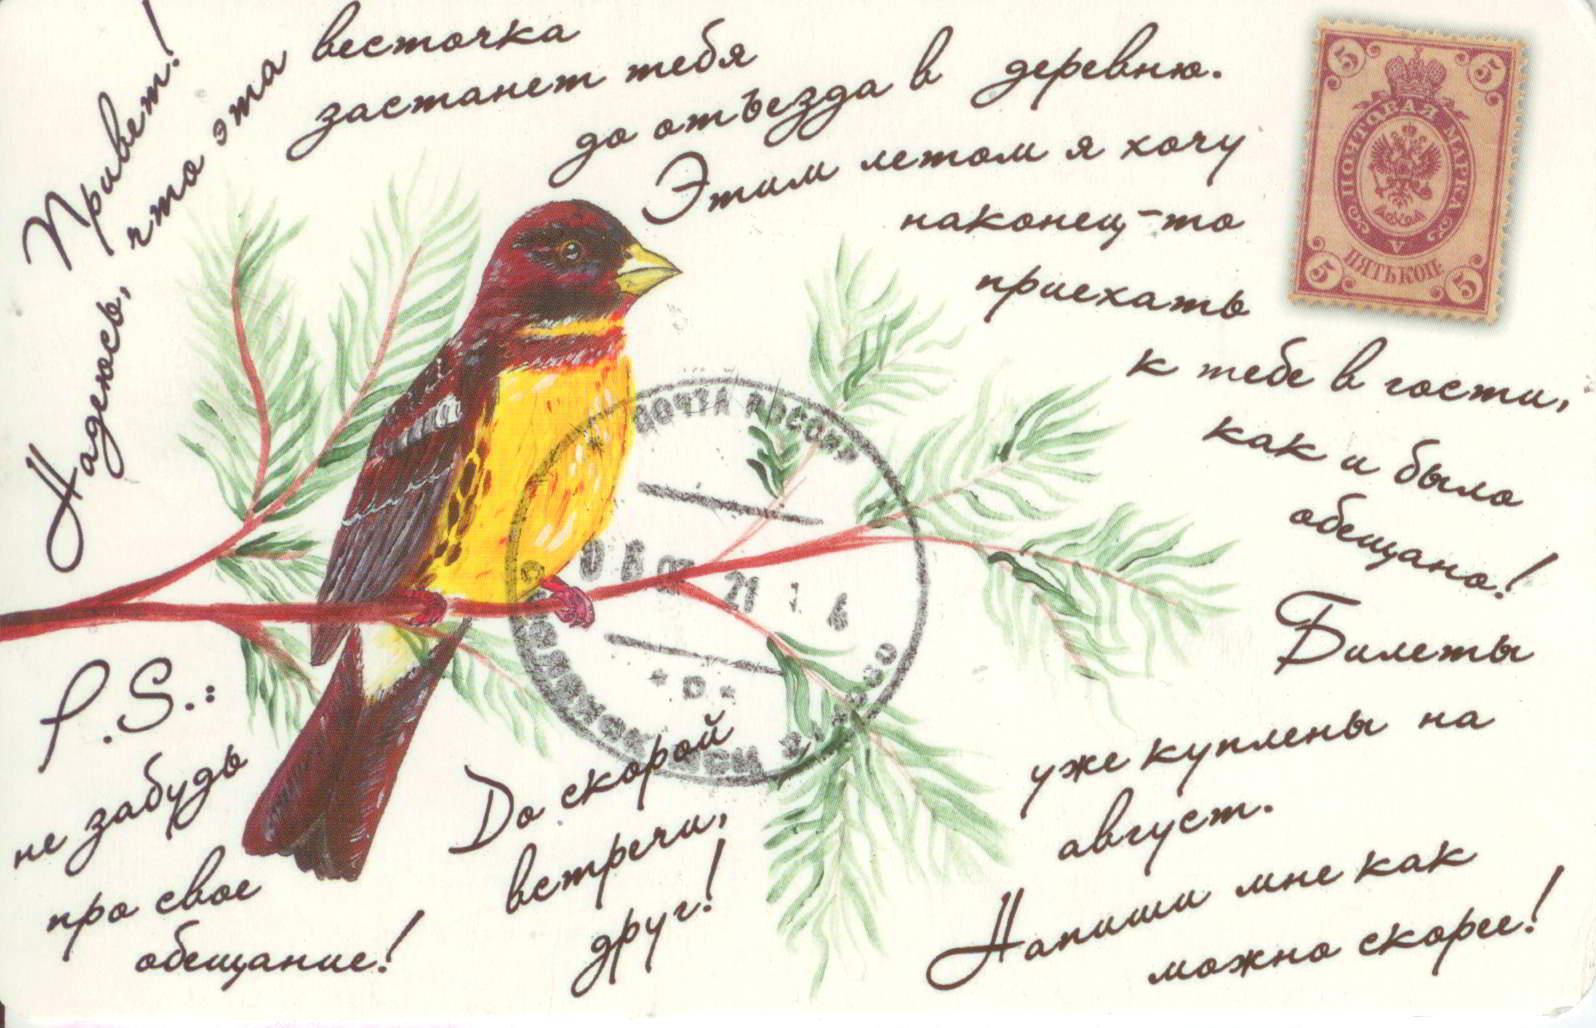 Привет!
Надеюсь, что эта весточка
застанет тебя
до отъезда в деревню.
Этим летом я хочу
наконец-то
приехать
к тебе в гости,
как и было
обещано!
Билеты
уже куплены на
август.
Напиши мне как
можно скорее!
До скорой
встречи,
друг!
P.S.:
не забудь
про свое
обещание!
5 5
ПОЧТОВАЯ МАРКА
V
ПЯТЬ КОП.
5 5
ПОЧТА РОССИИ